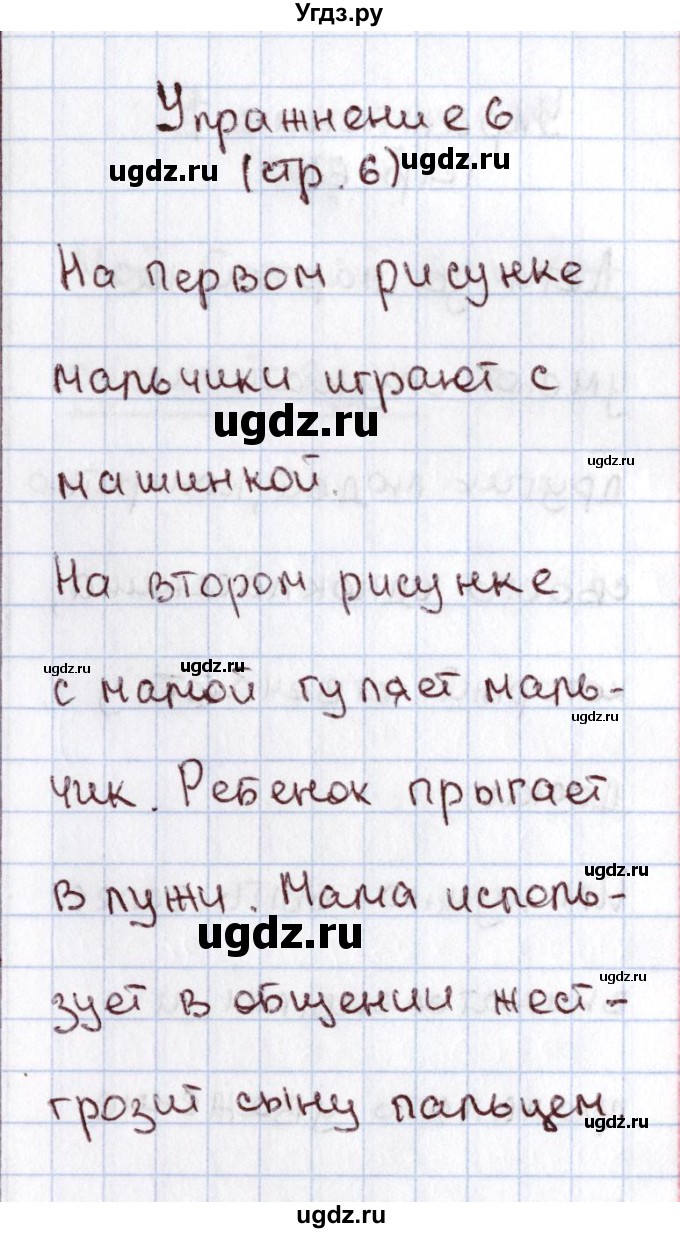 Угдз.ру
Упражнение 6
ugdz.ru (стр. 6) ugdz.ru
На первом рисунке
мальчики играют с
ugdz.ru
машинкой. ugdz.ru
На втором рисунке
ugdz.ru ugdz.ru
с мамой гуляет маль-
ugdz.ru
чик. Ребенок прыгает
ugdz.ru
в лужи. Мама исполь-
ugdz.ru
ugdz.ru
зует в общении жест-
грозит сыну пальцем
ugdz.ru
ugdz.ru